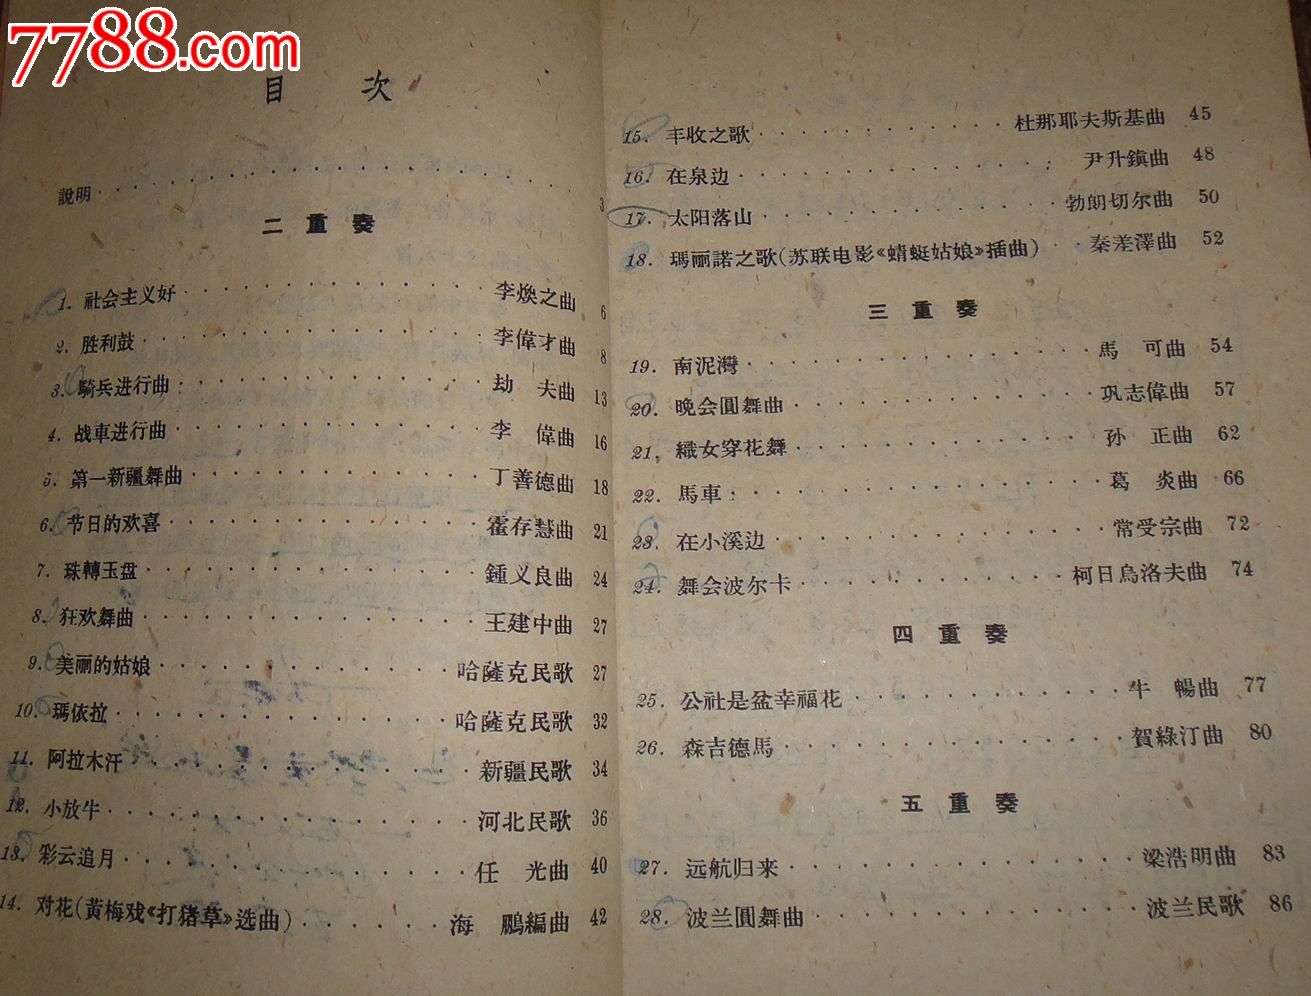 7788.com
目 次
說明 3
二重奏
1. 社会主义好 李煥之曲 6
2. 胜利鼓 李偉才曲 8
3. 騎兵进行曲 劫 夫曲 13
4. 战車进行曲 李 偉曲 16
5. 第一新疆舞曲 丁善德曲 18
6. 节日的欢喜 霍存慧曲 21
7. 珠轉玉盘 鍾义良曲 24
8. 狂欢舞曲 王建中曲 27
9. 美丽的姑娘 哈薩克民歌 27
10. 瑪依拉 哈薩克民歌 32
11. 阿拉木汗 新疆民歌 34
12. 小放牛 河北民歌 36
13. 彩云追月 任 光曲 40
14. 对花(黄梅戏《打猪草》选曲) 海 鵬編曲 42
15. 丰收之歌 杜那耶夫斯基曲 45
16. 在泉边 尹升鎭曲 48
17. 太阳落山 勃朗切尔曲 50
18. 瑪丽諾之歌(苏联电影《蜻蜓姑娘》插曲) 秦差澤曲 52
三重奏
19. 南泥灣 馬 可曲 54
20. 晚会圓舞曲 巩志偉曲 57
21. 織女穿花舞 孙 正曲 62
22. 馬車 葛 炎曲 66
23. 在小溪边 常受宗曲 72
24. 舞会波尔卡 柯日烏洛夫曲 74
四重奏
25. 公社是盆幸福花 牛 暢曲 77
26. 森吉德馬 賀綠汀曲 80
五重奏
27. 远航归来 梁浩明曲 83
28. 波兰圓舞曲 波兰民歌 86